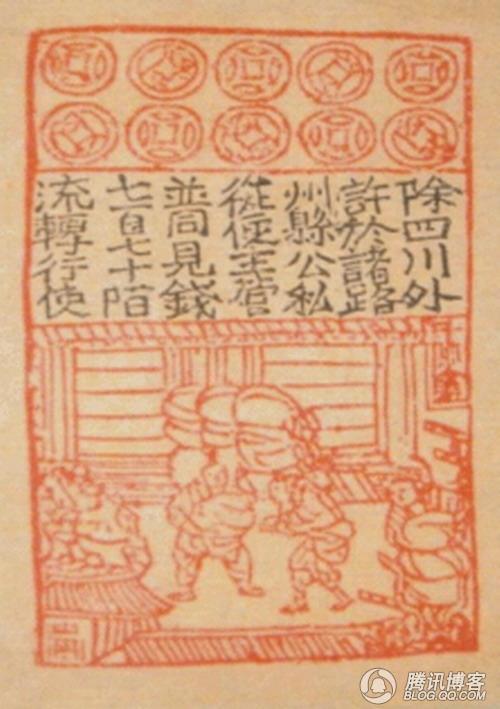 除四川外
許於諸路
州縣公私
從便主管
並同見錢
七百七十陌
流轉行使
腾讯博客
BLOG.QQ.COM